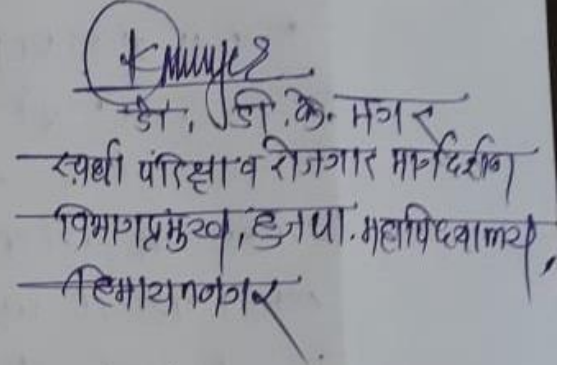 डॉ. डी. के. मगर
स्पर्धा परिक्षा व रोजगार मार्गदर्शन
विभागप्रमुख, हुजपा. महाविध्यालय,
हिमायतनगर